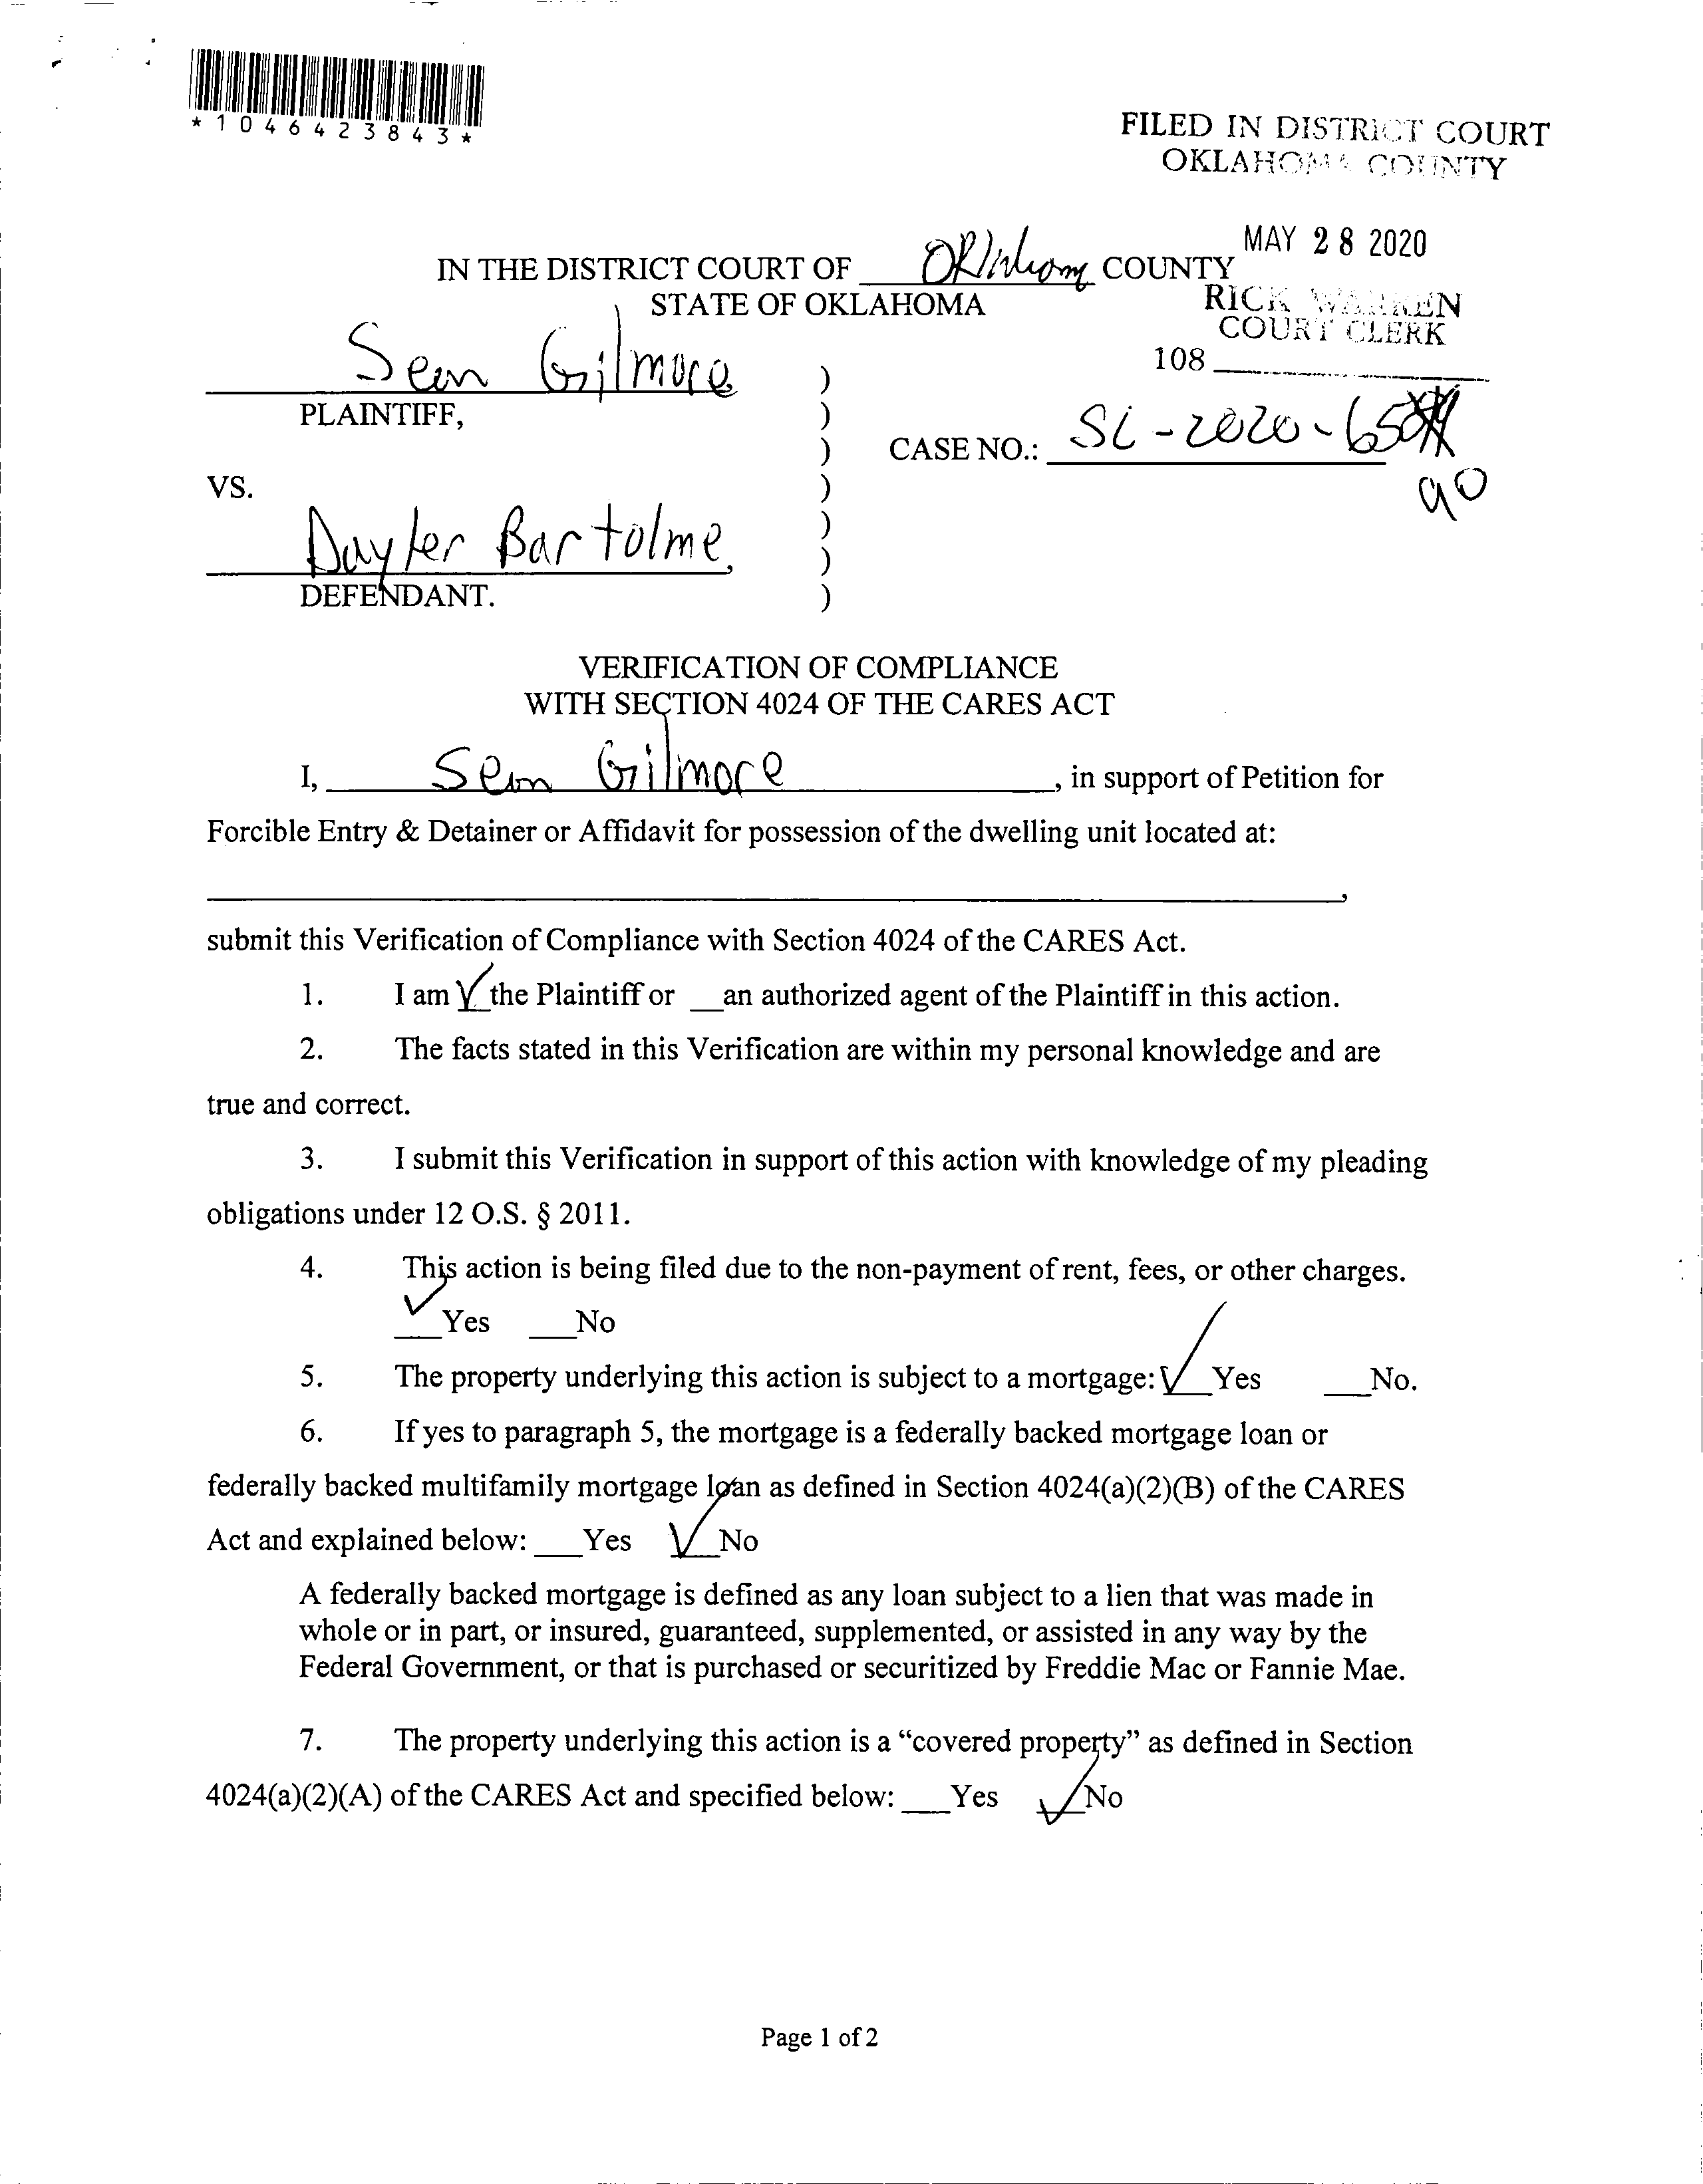 *1046423843*
FILED IN DISTRICT COURT
OKLAHOMA COUNTY
MAY 28 2020
IN THE DISTRICT COURT OF Oklahoma COUNTY
STATE OF OKLAHOMA
RICK WARREN
COURT CLERK
108
Sean Gilmore
PLAINTIFF,
CASE NO.: SC-2020-65
90
VS.
Bartolme,
DEFENDANT.
)
)
)
)
)
)
)
VERIFICATION OF COMPLIANCE
WITH SECTION 4024 OF THE CARES ACT
I, Sean Gilmore, in support of Petition for
Forcible Entry & Detainer or Affidavit for possession of the dwelling unit located at:
,
submit this Verification of Compliance with Section 4024 of the CARES Act.
1. I am ✓ the Plaintiff or __an authorized agent of the Plaintiff in this action.
2. The facts stated in this Verification are within my personal knowledge and are
true and correct.
3. I submit this Verification in support of this action with knowledge of my pleading
obligations under 12 O.S. § 2011.
4. This action is being filed due to the non-payment of rent, fees, or other charges.
✓ Yes ___No
5. The property underlying this action is subject to a mortgage: ✓ Yes ___No.
6. If yes to paragraph 5, the mortgage is a federally backed mortgage loan or
federally backed multifamily mortgage loan as defined in Section 4024(a)(2)(B) of the CARES
Act and explained below: ___Yes ✓ No
A federally backed mortgage is defined as any loan subject to a lien that was made in
whole or in part, or insured, guaranteed, supplemented, or assisted in any way by the
Federal Government, or that is purchased or securitized by Freddie Mac or Fannie Mae.
7. The property underlying this action is a “covered property” as defined in Section
4024(a)(2)(A) of the CARES Act and specified below: ___Yes ✓ No
Page 1 of 2